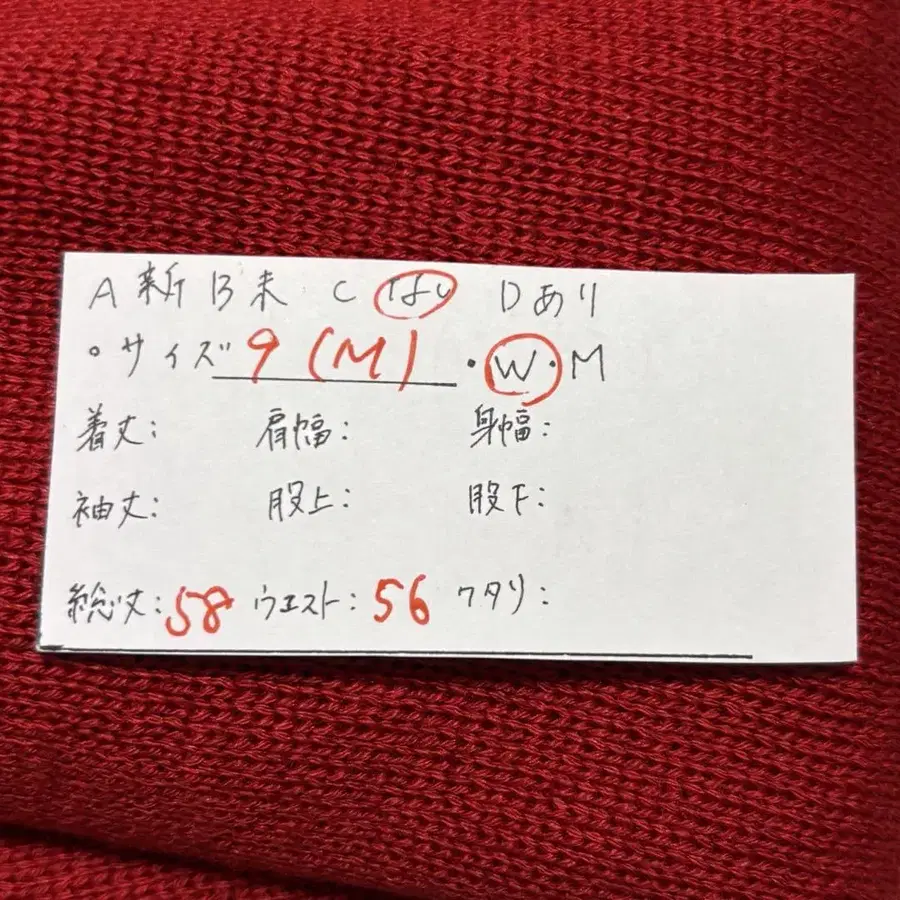 A 新 B 未 C なし D あり
。サイズ 9 (M) ・W・M
着丈: 肩幅: 身幅:
袖丈: 股上: 股下:
総丈:58 ウエスト:56 ワタリ: